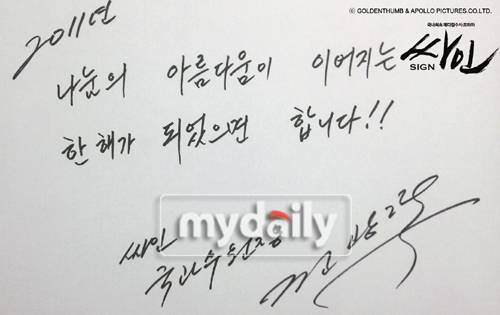 © GOLDENTHUMB & APOLLO PICTURES CO.LTD.
2011년
싸인
SIGN
나눔의 아름다움이 이어지는
한 해가 되었으면 합니다!!
mydaily
싸인
국과수 원장